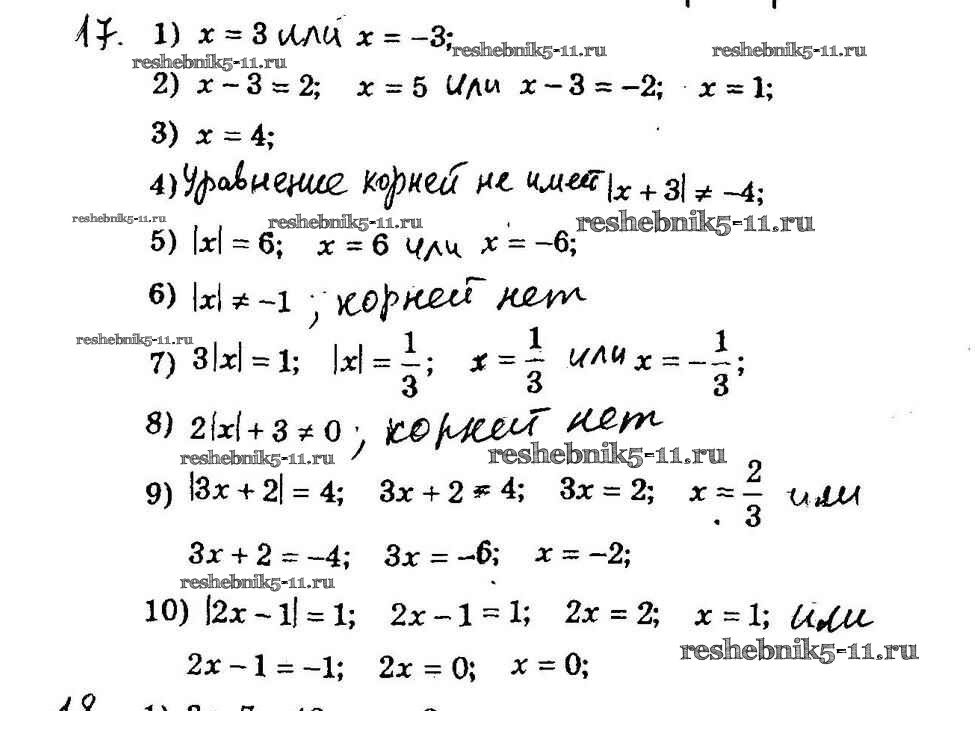 17. 1) x = 3 или x = −3; reshebnik5-11.ru reshebnik5-11.ru
reshebnik5-11.ru
2) x − 3 = 2; x = 5 или x − 3 = −2; x = 1;
3) x = 4;
4) Уравнение корней не имеет |x + 3| ≠ −4;
reshebnik5-11.ru reshebnik5-11.ru reshebnik5-11.ru
5) |x| = 6; x = 6 или x = −6;
6) |x| ≠ −1 ; корней нет
reshebnik5-11.ru
7) 3|x| = 1; |x| = 1/3; x = 1/3 или x = −1/3;
8) 2|x| + 3 ≠ 0 ; корней нет
reshebnik5-11.ru reshebnik5-11.ru
9) |3x + 2| = 4; 3x + 2 = 4; 3x = 2; x = 2/3 или
3x + 2 = −4; 3x = −6; x = −2;
reshebnik5-11.ru
10) |2x − 1| = 1; 2x − 1 = 1; 2x = 2; x = 1; или
reshebnik5-11.ru
2x − 1 = −1; 2x = 0; x = 0;